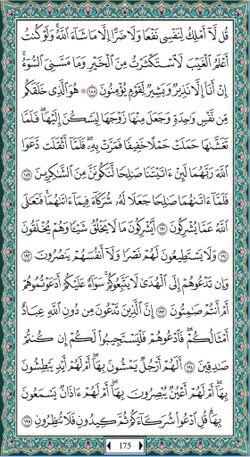 قُل لَّآ أَمْلِكُ لِنَفْسِى نَفْعًا وَلَا ضَرًّا إِلَّا مَا شَآءَ ٱللَّهُ ۚ وَلَوْ كُنتُ
أَعْلَمُ ٱلْغَيْبَ لَٱسْتَكْثَرْتُ مِنَ ٱلْخَيْرِ وَمَا مَسَّنِىَ ٱلسُّوٓءُ ۚ
إِنْ أَنَا۠ إِلَّا نَذِيرٌ وَبَشِيرٌ لِّقَوْمٍ يُؤْمِنُونَ ﴿١٨٨﴾ ۞ هُوَ ٱلَّذِى خَلَقَكُم
مِّن نَّفْسٍ وَٰحِدَةٍ وَجَعَلَ مِنْهَا زَوْجَهَا لِيَسْكُنَ إِلَيْهَا ۖ فَلَمَّا
تَغَشَّىٰهَا حَمَلَتْ حَمْلًا خَفِيفًا فَمَرَّتْ بِهِۦ ۖ فَلَمَّآ أَثْقَلَت دَّعَوَا
ٱللَّهَ رَبَّهُمَا لَئِنْ ءَاتَيْتَنَا صَٰلِحًا لَّنَكُونَنَّ مِنَ ٱلشَّٰكِرِينَ ﴿١٨٩﴾
فَلَمَّآ ءَاتَىٰهُمَا صَٰلِحًا جَعَلَا لَهُۥ شُرَكَآءَ فِيمَآ ءَاتَىٰهُمَا ۚ فَتَعَٰلَى
ٱللَّهُ عَمَّا يُشْرِكُونَ ﴿١٩٠﴾ أَيُشْرِكُونَ مَا لَا يَخْلُقُ شَيْـًٔا وَهُمْ يُخْلَقُونَ
﴿١٩١﴾ وَلَا يَسْتَطِيعُونَ لَهُمْ نَصْرًا وَلَآ أَنفُسَهُمْ يَنصُرُونَ ﴿١٩٢﴾
وَإِن تَدْعُوهُمْ إِلَى ٱلْهُدَىٰ لَا يَتَّبِعُوكُمْ ۚ سَوَآءٌ عَلَيْكُمْ أَدَعَوْتُمُوهُمْ
أَمْ أَنتُمْ صَٰمِتُونَ ﴿١٩٣﴾ إِنَّ ٱلَّذِينَ تَدْعُونَ مِن دُونِ ٱللَّهِ عِبَادٌ
أَمْثَالُكُمْ ۖ فَٱدْعُوهُمْ فَلْيَسْتَجِيبُوا۟ لَكُمْ إِن كُنتُمْ
صَٰدِقِينَ ﴿١٩٤﴾ أَلَهُمْ أَرْجُلٌ يَمْشُونَ بِهَآ ۖ أَمْ لَهُمْ أَيْدٍ يَبْطِشُونَ
بِهَآ ۖ أَمْ لَهُمْ أَعْيُنٌ يُبْصِرُونَ بِهَآ ۖ أَمْ لَهُمْ ءَاذَانٌ يَسْمَعُونَ
بِهَا ۗ قُلِ ٱدْعُوا۟ شُرَكَآءَكُمْ ثُمَّ كِيدُونِ فَلَا تُنظِرُونِ ﴿١٩٥﴾
175